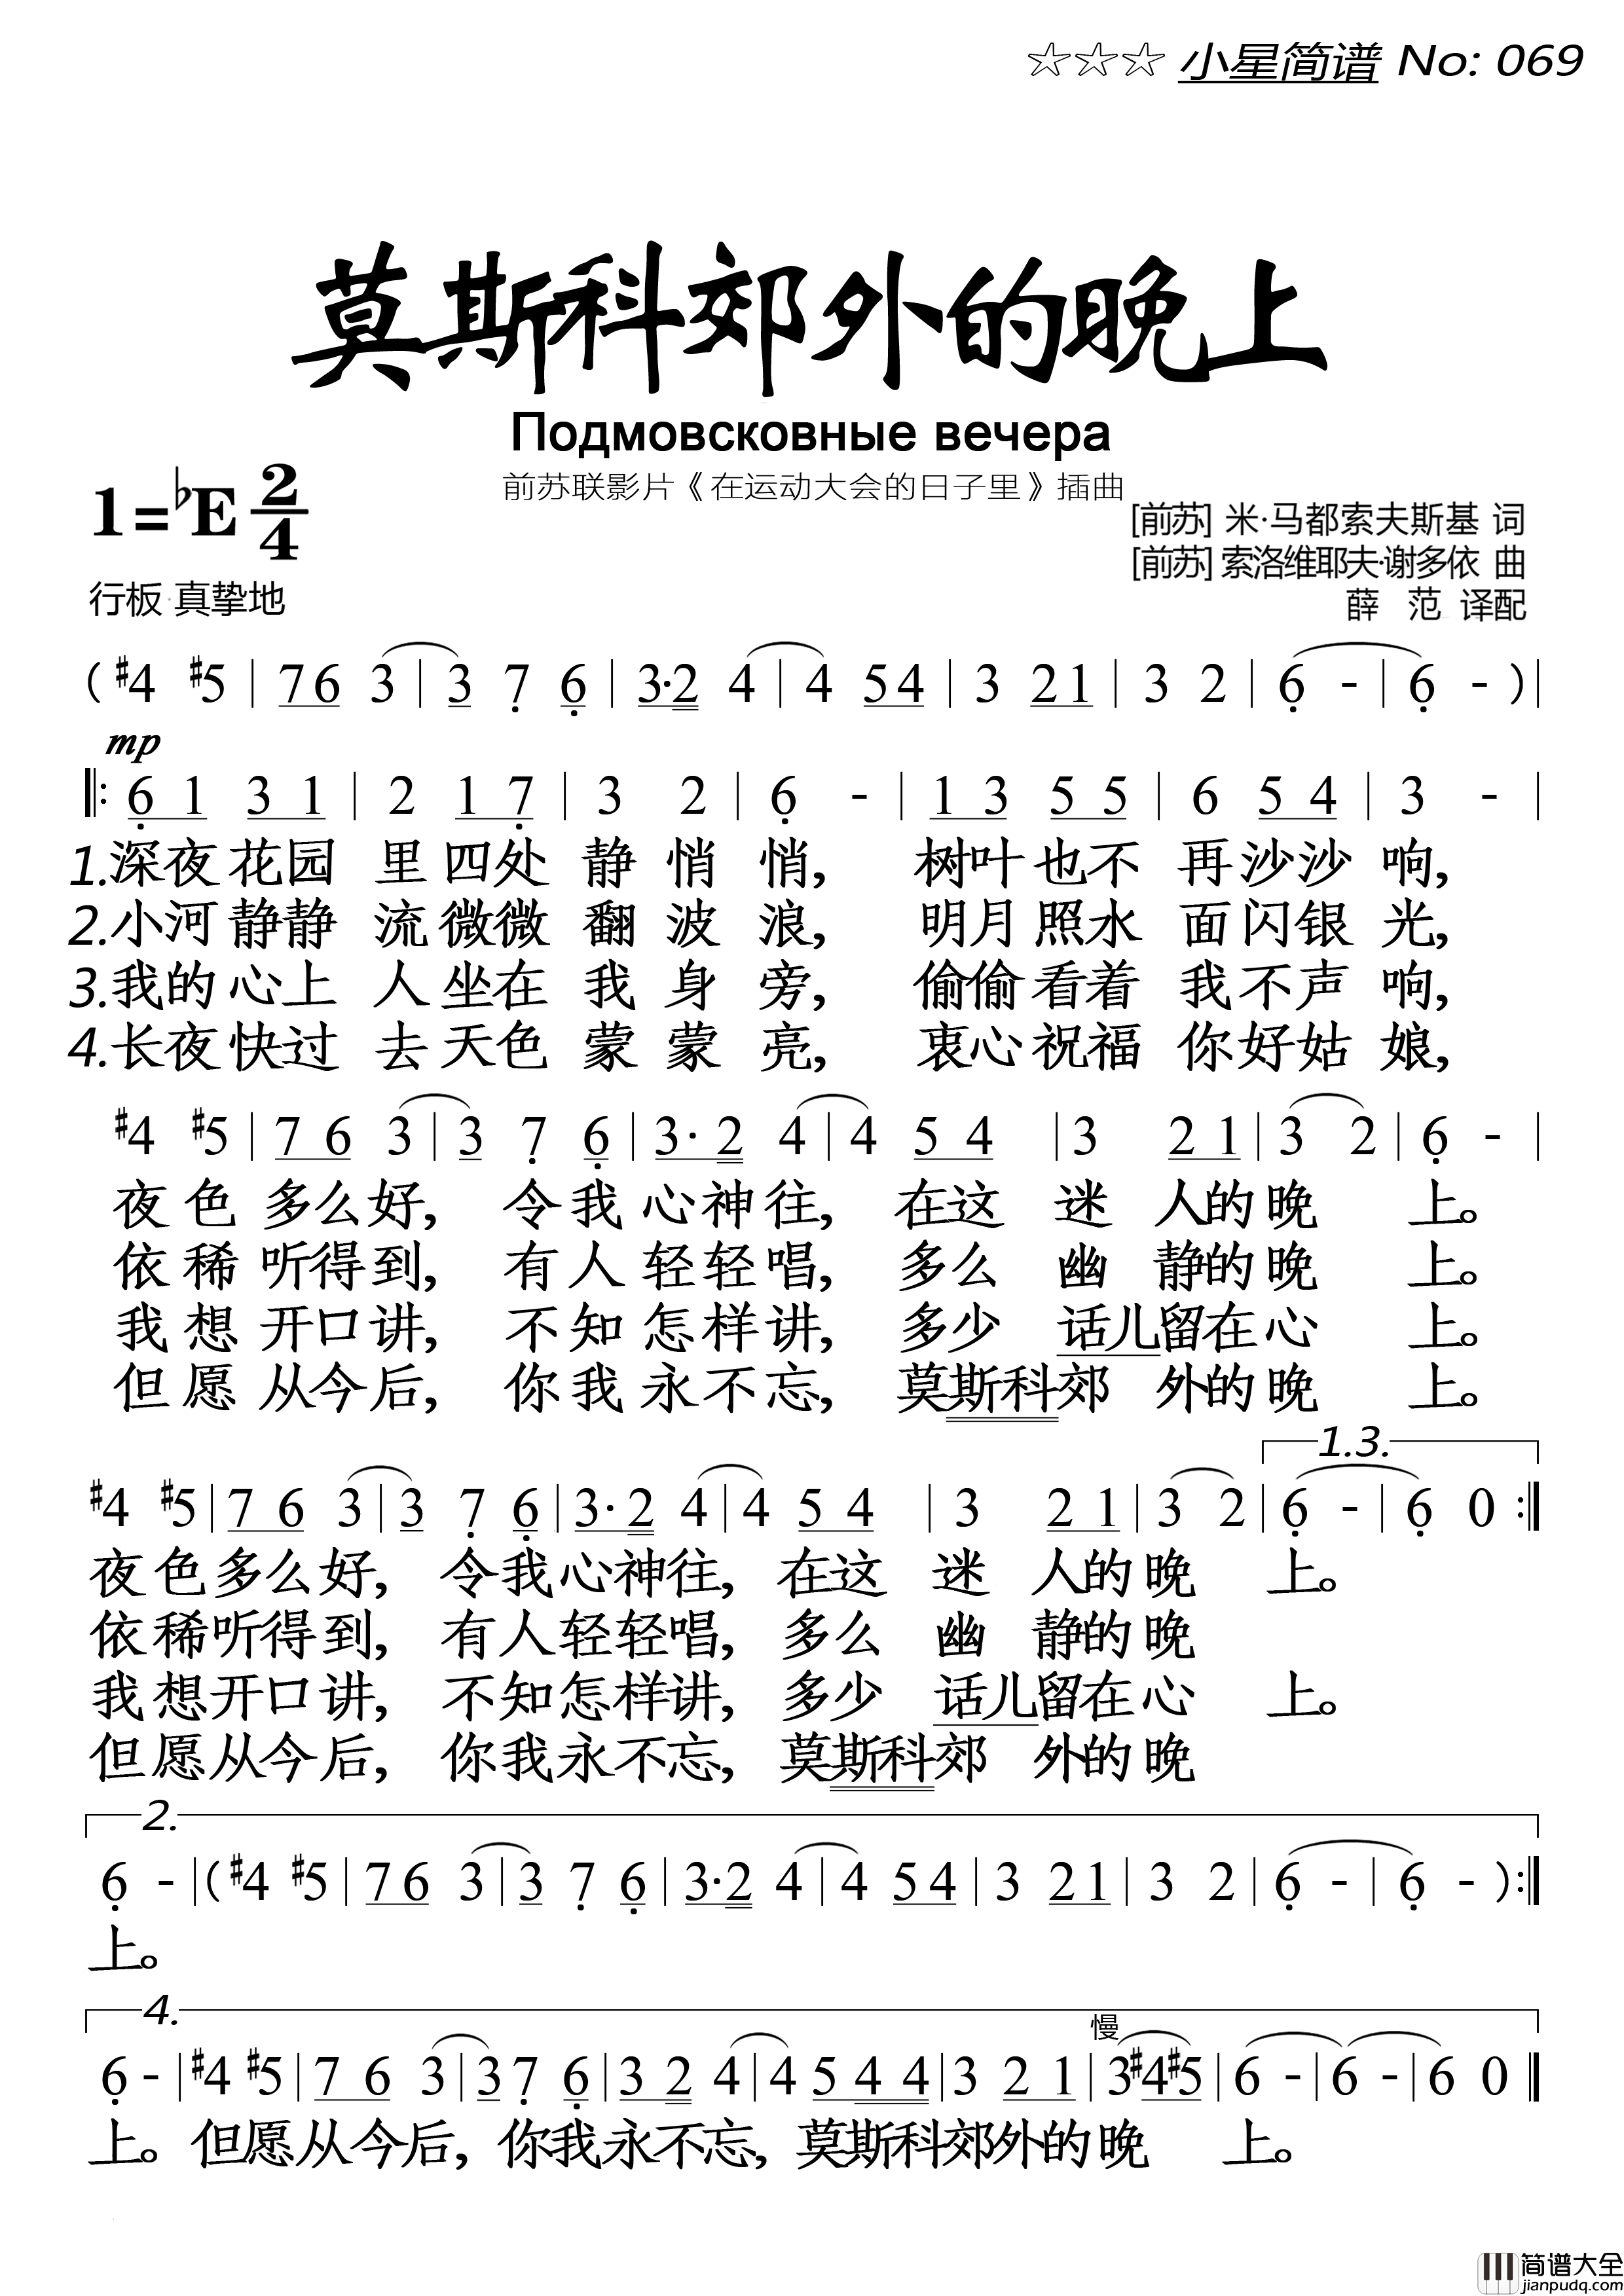 ☆☆☆ 小星简谱 No: 069
莫斯科郊外的晚上
Подмовсковные вечера
前苏联影片《在运动大会的日子里》插曲
1=♭E 2/4
[前苏] 米·马都索夫斯基 词
[前苏] 索洛维耶夫·谢多依 曲
行板·真挚地
薛 范 译配
( #4 #5 | 7 6 3 | 3 7 6 | 3· 2 4 | 4 5 4 | 3 2 1 | 3 2 | 6 - | 6 - ) |
mp
‖: 6 1 3 1 | 2 1 7 | 3 2 | 6 - | 1 3 5 5 | 6 5 4 | 3 - |
1.深夜花园 里四处 静 悄 悄, 树叶也不 再沙沙 响,
2.小河静静 流微微 翻 波 浪, 明月照水 面闪银 光,
3.我的心上 人坐在 我 身 旁, 偷偷看着 我不声 响,
4.长夜快过 去天色 蒙 蒙 亮, 衷心祝福 你好姑 娘,
#4 #5 | 7 6 3 | 3 7 6 | 3· 2 4 | 4 5 4 | 3 2 1 | 3 2 | 6 - |
夜 色 多么好, 令我 心神往, 在这 迷 人的晚 上。
依 稀 听得到, 有人 轻轻唱, 多么 幽 静的晚 上。
我 想 开口讲, 不知 怎样讲, 多少 话儿留在心 上。
但 愿 从今后, 你我 永不忘, 莫斯科郊 外的晚 上。
1.3.
#4 #5 | 7 6 3 | 3 7 6 | 3· 2 4 | 4 5 4 | 3 2 1 | 3 2 | 6 - | 6 0 :‖
夜色多么好, 令我心神往, 在这 迷 人的晚 上。
依稀听得到, 有人轻轻唱, 多么 幽 静的晚
我想开口讲, 不知怎样讲, 多少 话儿留在心 上。
但愿从今后, 你我永不忘, 莫斯科郊 外的晚
2.
6 - | ( #4 #5 | 7 6 3 | 3 7 6 | 3· 2 4 | 4 5 4 | 3 2 1 | 3 2 | 6 - | 6 - ) :‖
上。
4.
慢
6 - | #4 #5 | 7 6 3 | 3 7 6 | 3 2 4 | 4 5 4 4 | 3 2 1 | 3 #4 #5 | 6 - | 6 - | 6 0 ‖
上。但愿从今后, 你我永不忘, 莫斯科郊外的晚 上。
简谱大全
jianpudq.com